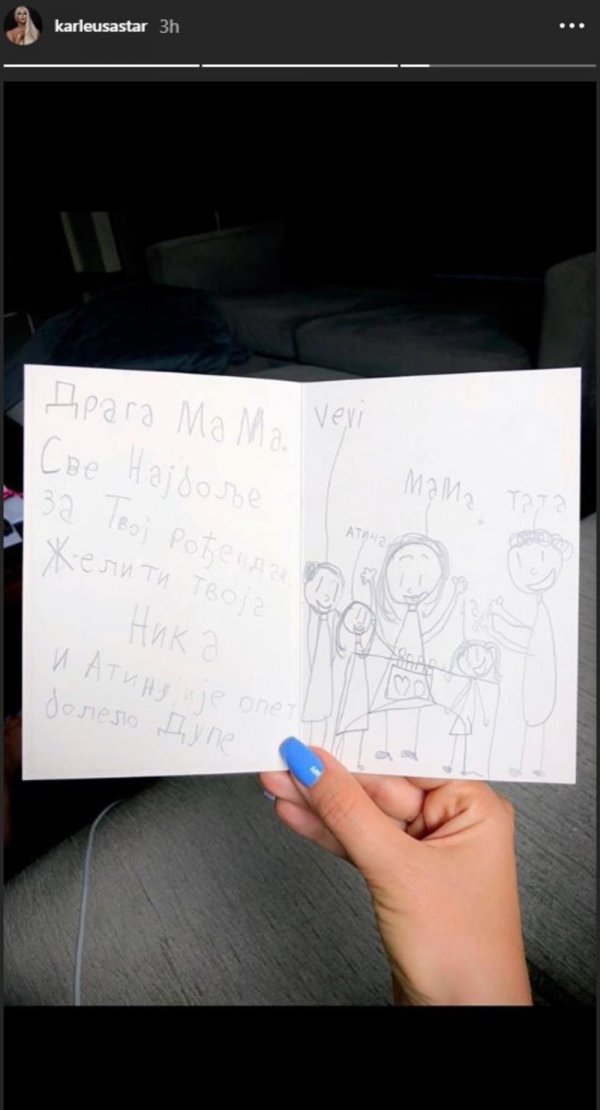 karleusastar 3h
Драга МаМа.
Све Најбоље
за Твој рођендан.
Желити твоја
Ника
и Атину је опет
болело Дупе
Vevi
МаМа
тата
Атина
Ја